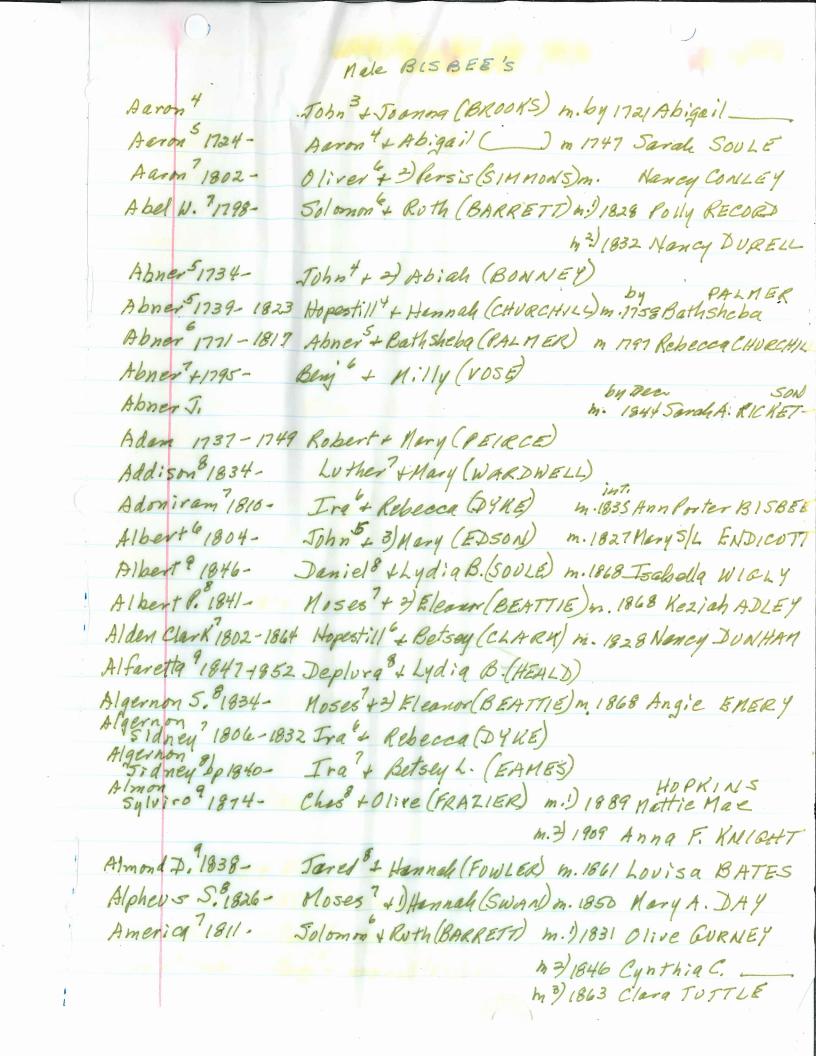 Male BISBEE'S
Aaron⁴ John³ + Joanna (BROOKS) m. by 1721 Abigail ____
Aaron⁵ 1724- Aaron⁴ + Abigail (____) m 1747 Sarah SOULE
Aaron⁷ 1802- Oliver⁶ + 2) Persis (SIMMONS) m. Nancy CONLEY
Abel W.⁷ 1798- Solomon⁶ + Ruth (BARRETT) m.¹) 1828 Polly RECORD
m²) 1832 Nancy DURELL
Abner⁵ 1734- John⁴ + 2) Abiah (BONNEY)
by PALMER
Abner⁵ 1739-1823 Hopestill⁴ + Hannah (CHURCHILL) m. 1758 Bathsheba
Abner⁶ 1771-1817 Abner⁵ + Bathsheba (PALMER) m 1797 Rebecca CHURCHIL
Abner⁷ +1795- Benj⁶ + Milly (VOSE)
by Dec SON
Abner J. m. 1844 Sarah A. RICKET-
Adam 1737-1749 Robert + Mary (PEIRCE)
Addison⁸ 1834- Luther⁷ + Mary (WARDWELL)
int.
Adoniram⁷ 1810- Ira⁶ + Rebecca (DYKE) m. 1835 Ann Porter BISBEE
Albert⁶ 1804- John⁵ + 3) Mary (EDSON) m. 1827 Mary S/L ENDICOTT
Albert⁹ 1846- Daniel⁸ + Lydia B. (SOULE) m. 1868 Isabella WIGLY
Albert P.⁸ 1841- Moses⁷ + 2) Eleanor (BEATTIE) m. 1868 Keziah ADLEY
Alden Clark⁷ 1802-1864 Hopestill⁶ + Betsey (CLARK) m. 1828 Nancy DUNHAM
Alfaretta⁹ 1847+1852 Deplura⁸ + Lydia B. (HEALD)
Algernon S.⁸ 1834- Moses⁷ + 2) Eleanor (BEATTIE) m. 1868 Angie EMERY
Algernon
Sidney⁷ 1806-1832 Ira⁶ + Rebecca (DYKE)
Algernon
Sidney⁸ bp 1840- Ira⁷ + Betsey L. (EAMES)
Almon HOPKINS
Sylviro⁹ 1874- Chas⁸ + Olive (FRAZIER) m.¹) 1889 Mattie Mae
m.²) 1909 Anna F. KNIGHT
Almond D.⁹ 1838- Jared⁸ + Hannah (FOWLER) m. 1861 Lovisa BATES
Alpheus S.⁸ 1826- Moses⁷ + 1) Hannah (SWAN) m. 1850 Mary A. DAY
America⁷ 1811- Solomon⁶ + Ruth (BARRETT) m.¹) 1831 Olive GURNEY
m²) 1846 Cynthia C. ____
m³) 1863 Clara TUTTLE